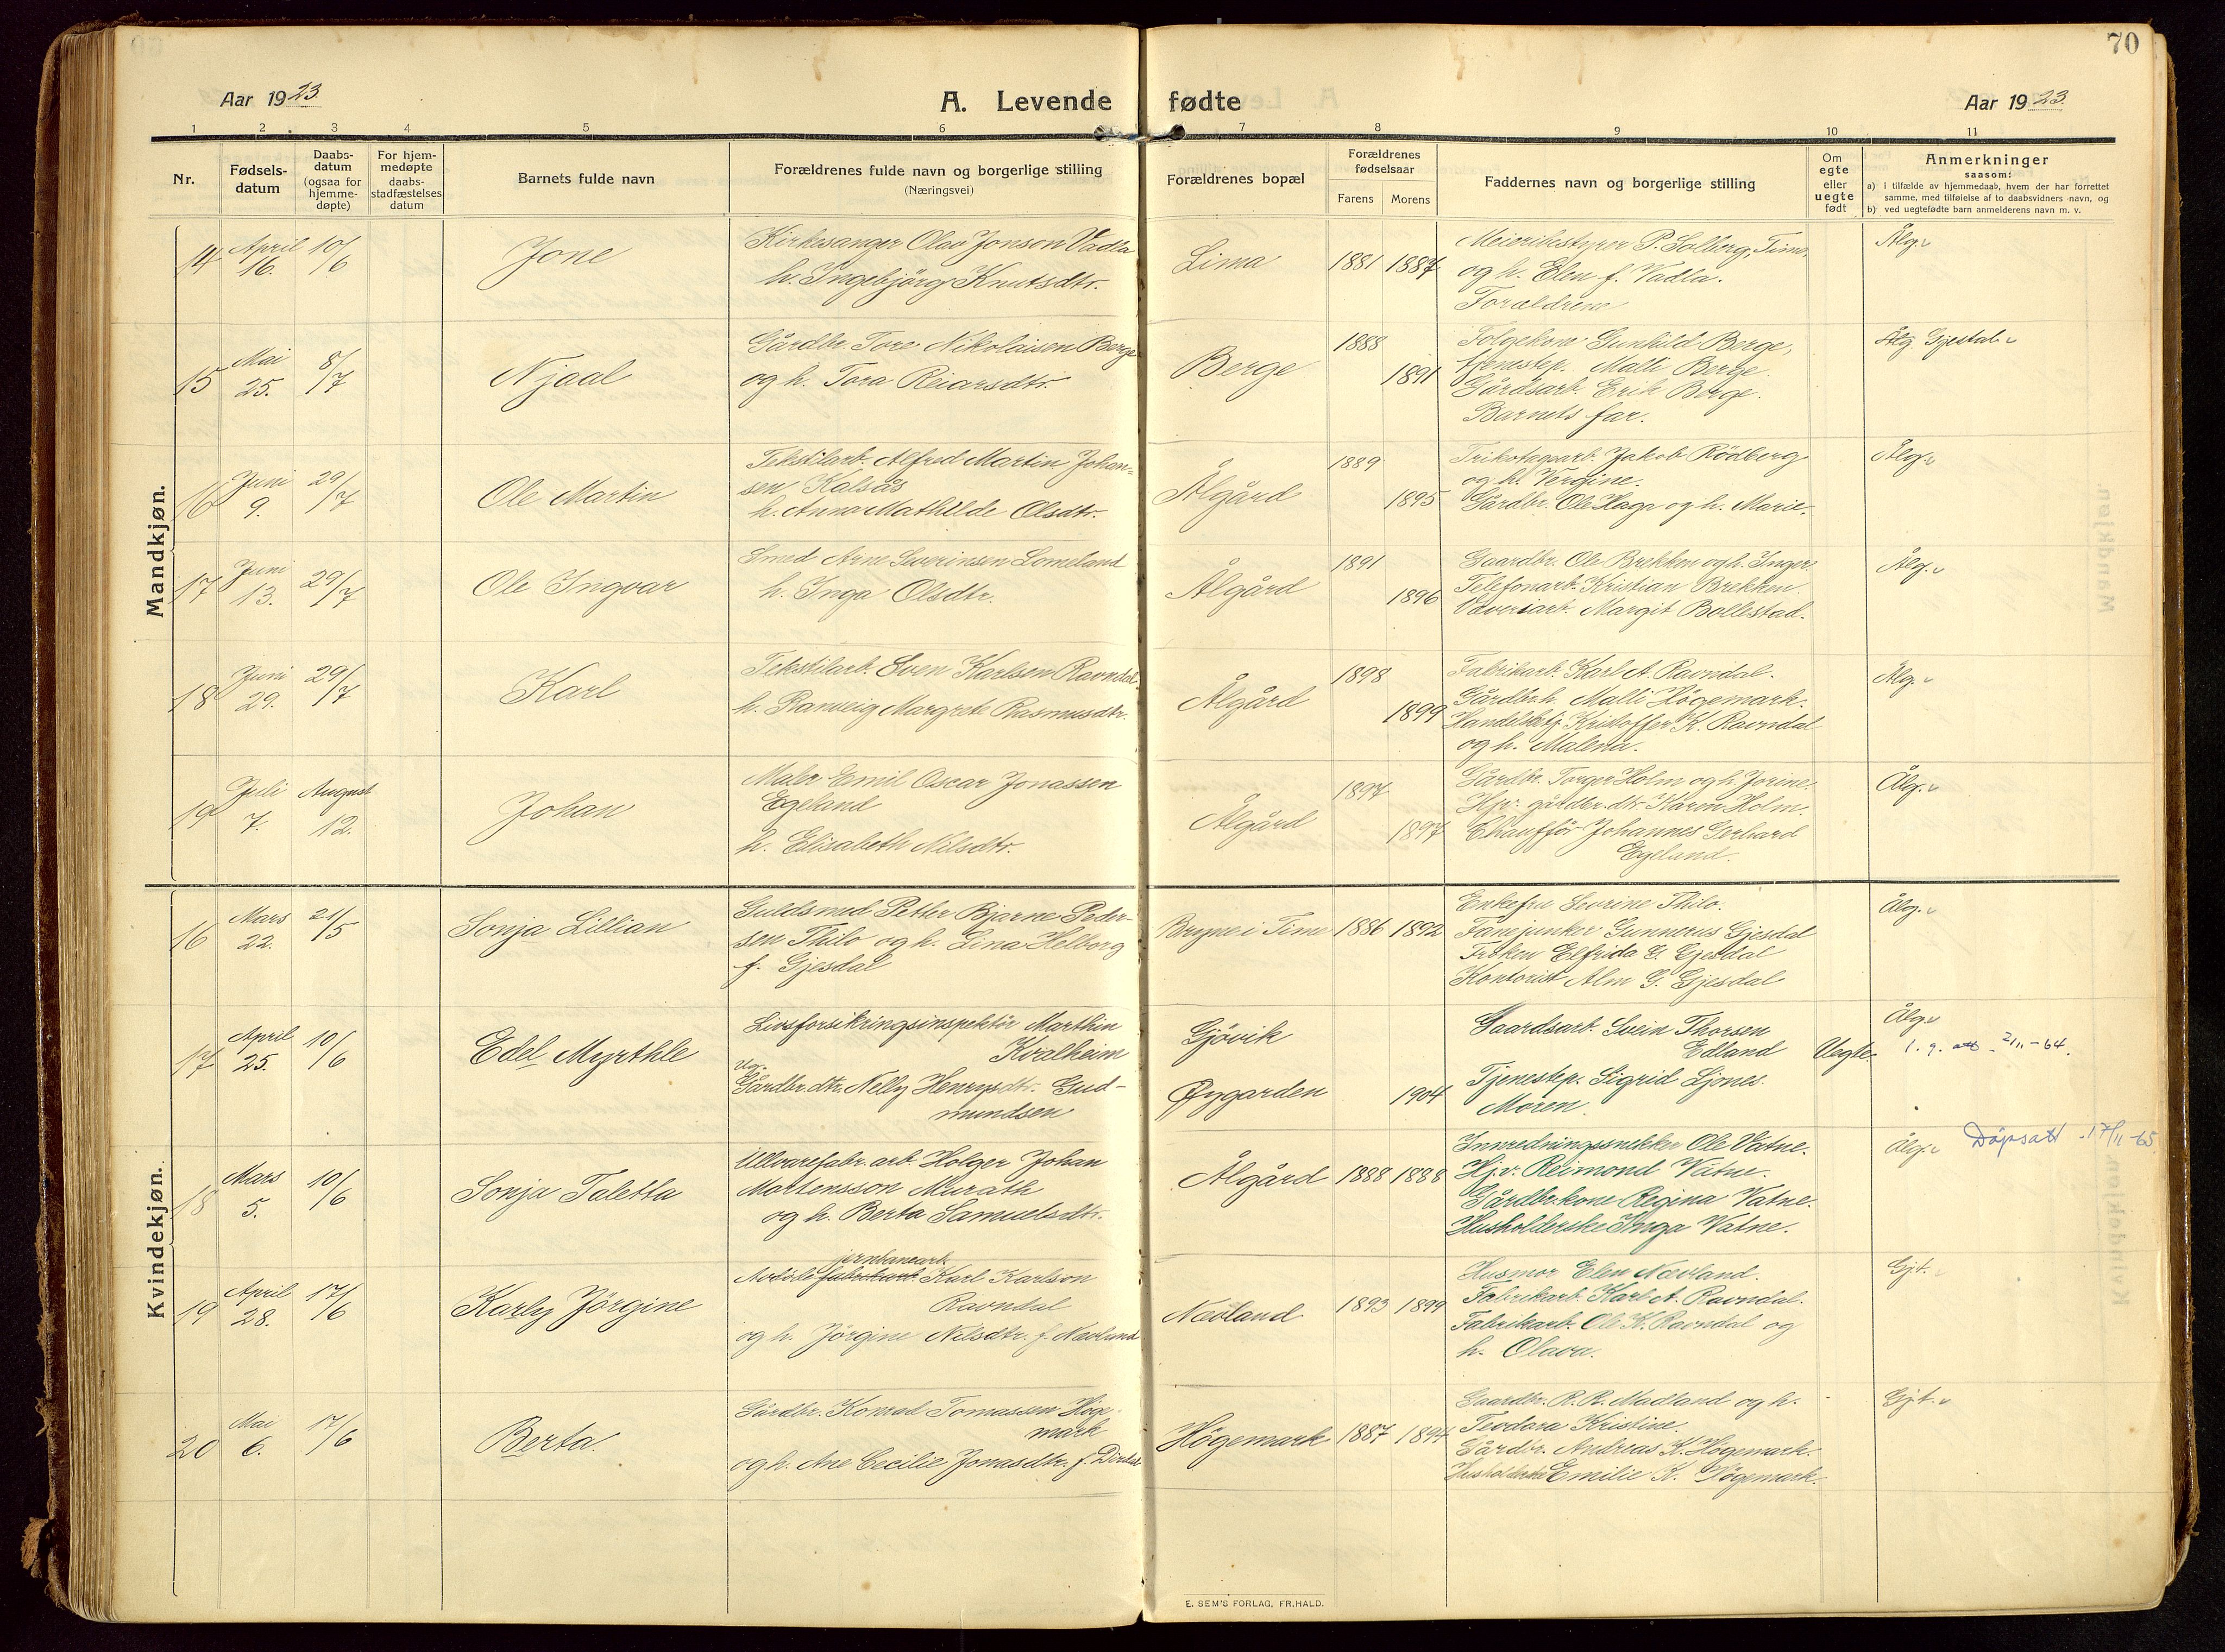 70
Aar 1923
A. Levende fødte
Aar 1923
1 2 3 4 5 6 7 8 9 10 11
Nr.
Fødsels-
datum
Daabs-
datum
(ogsaa for
hjemme-
døpte)
For hjem-
medøpte
daabs-
stadfæstelses
datum
Barnets fulde navn
Forældrenes fulde navn og borgerlige stilling
(Næringsvei)
Forældrenes bopæl
Forældrenes
fødselsaar
Farens Morens
Faddernes navn og borgerlige stilling
Om
egte
eller
uegte
født
Anmerkninger
saasom:
a) i tilfælde av hjemmedaab, hvem der har forrettet
samme, med tilføielse af to daabsvidners navn, og
b) ved uegtefødte barn anmelderens navn m. v.
Mandkjøn.
14 April 16. 10/6
Jone
Kirkesanger Olav Jonson Vadla
h. Ingebjörg Knutsdtr.
Lima
1881 1887
Meieribstyrer P. Solberg, Time,
og h. Elen f. Vadla.
Forældrene
Ålg.
15 Mai 25. 8/7
Njaal
Gårdbr. Tore Nikolaisen Berge
og h. Tora Reiarsdtr.
Berge
1888
1891
Folgekone Gunhild Berge,
tjenestep. Malli Berge.
Gårdsarb. Erik Berge.
Barnets far.
Ålg. Gjestal
16 Juni 9. 29/7
Ole Martin
Tekstilarb. Alfred Martin Johan-
sen Kalsås
h. Anna Mathilde Olsdtr.
Ålgård
1889
1895
Trikotagearb. Jakob Rödberg
og h. Vergine.
Gårdbr. Ole Haga og h. Marie.
Ålg.
17 Juni 13. 29/7
Ole Ingvar
Smed Arne Severinsen Lomeland
h. Inga Olsdtr.
Ålgård
1891
1896
Gaardbr. Ole Brekken og h. Inger.
Telefonarb. Kristian Brekken.
Væveriarb. Margit Bollestad.
Ålg.
18 Juni 29. 29/7
Karl
Tekstilarb. Sven Karlsen Ravndal
h. Ranveig Margrete Rasmusdtr.
Ålgård
1898
1899
Fabrikarb. Karl A. Ravndal.
Gårdbr.h. Malli Högemark.
Handelsbetj. Kristoffer K. Ravndal
og h. Malena.
Ålg.
19 Juli 7. August 12.
Johan
Maler Emil Oscar Jonassen
Egeland
h. Elisabeth Nilsdtr.
Ålgård
1897
1897
Gårdbr. Torger Holm og h. Jorine.
Hjv. gårdbr. dtr Karen Holm.
Chauffør Johannes Gerhard
Egeland.
Ålg.
Kvindekjøn.
16 Mars 22. 21/5
Sonja Lillian
Guldsmed Petter Bjarne Peder-
sen Thilo og h. Lina Helborg
f. Gjesdal
Bryne i Time
1886 1892
Enkefru Severine Thilo.
Fanejunker Gunnerius Gjesdal
Frøken Elfrida G. Gjesdal
Kontorist Alm G. Gjesdal
Ålg.
17 April 25. 10/6
Edel Myrthle
Livsforsikringsinspektör Marthin
Kvalheim
Ug.
Gårdbr.dtr. Nelly Henrysdtr. Gud-
mundsen
Gjövik
Øygarden
1904
Gaardsarb. Svein Thorsen
Edland
Tjenestep. Sigrid Ljones.
Moren.
Uegte.
Ålg.
2/11-64.
18 Mars 5. 10/6
Sonja Taletta
Ullvarefabr. arb. Holger Johan
Mortensson Murath
og h. Berta Samuelsdtr.
Ålgård
1888 1888
Innredningssnekker Ole Vatne.
Hj.v. Reimond Vatne.
Gårdbr.kone Regina Vatne.
Husholderske Inga Vatne.
Ålg. Dåpsatt 17/11-65
19 April 28. 17/6
Karly Jörgine
jernbanearb.
fabrikarb. Karl Karlson
Ravndal
og h. Jörgine Nilsdtr. f. Nævland
Nævland
1893 1899
Husmor Elen Nævland.
Fabrikarb. Karl A. Ravndal.
Fabrikarb. Ole K. Ravndal og
h. Olava.
Gjt.
20 Mai 6. 17/6
Berta.
Gårdbr. Konrad Tomassen Høge-
mark
og h. Ane Cecilie Jonasdtr. f. Dirdal
Högemark
1887 1894
Gaardbr. R. R. Madland og h.
Teodora Kristine.
Gårdbr. Andreas K. Høgemark.
Husholderske Emilie K. Høgemark.
Gjt.
E. SEM'S FORLAG, FR.HALD.